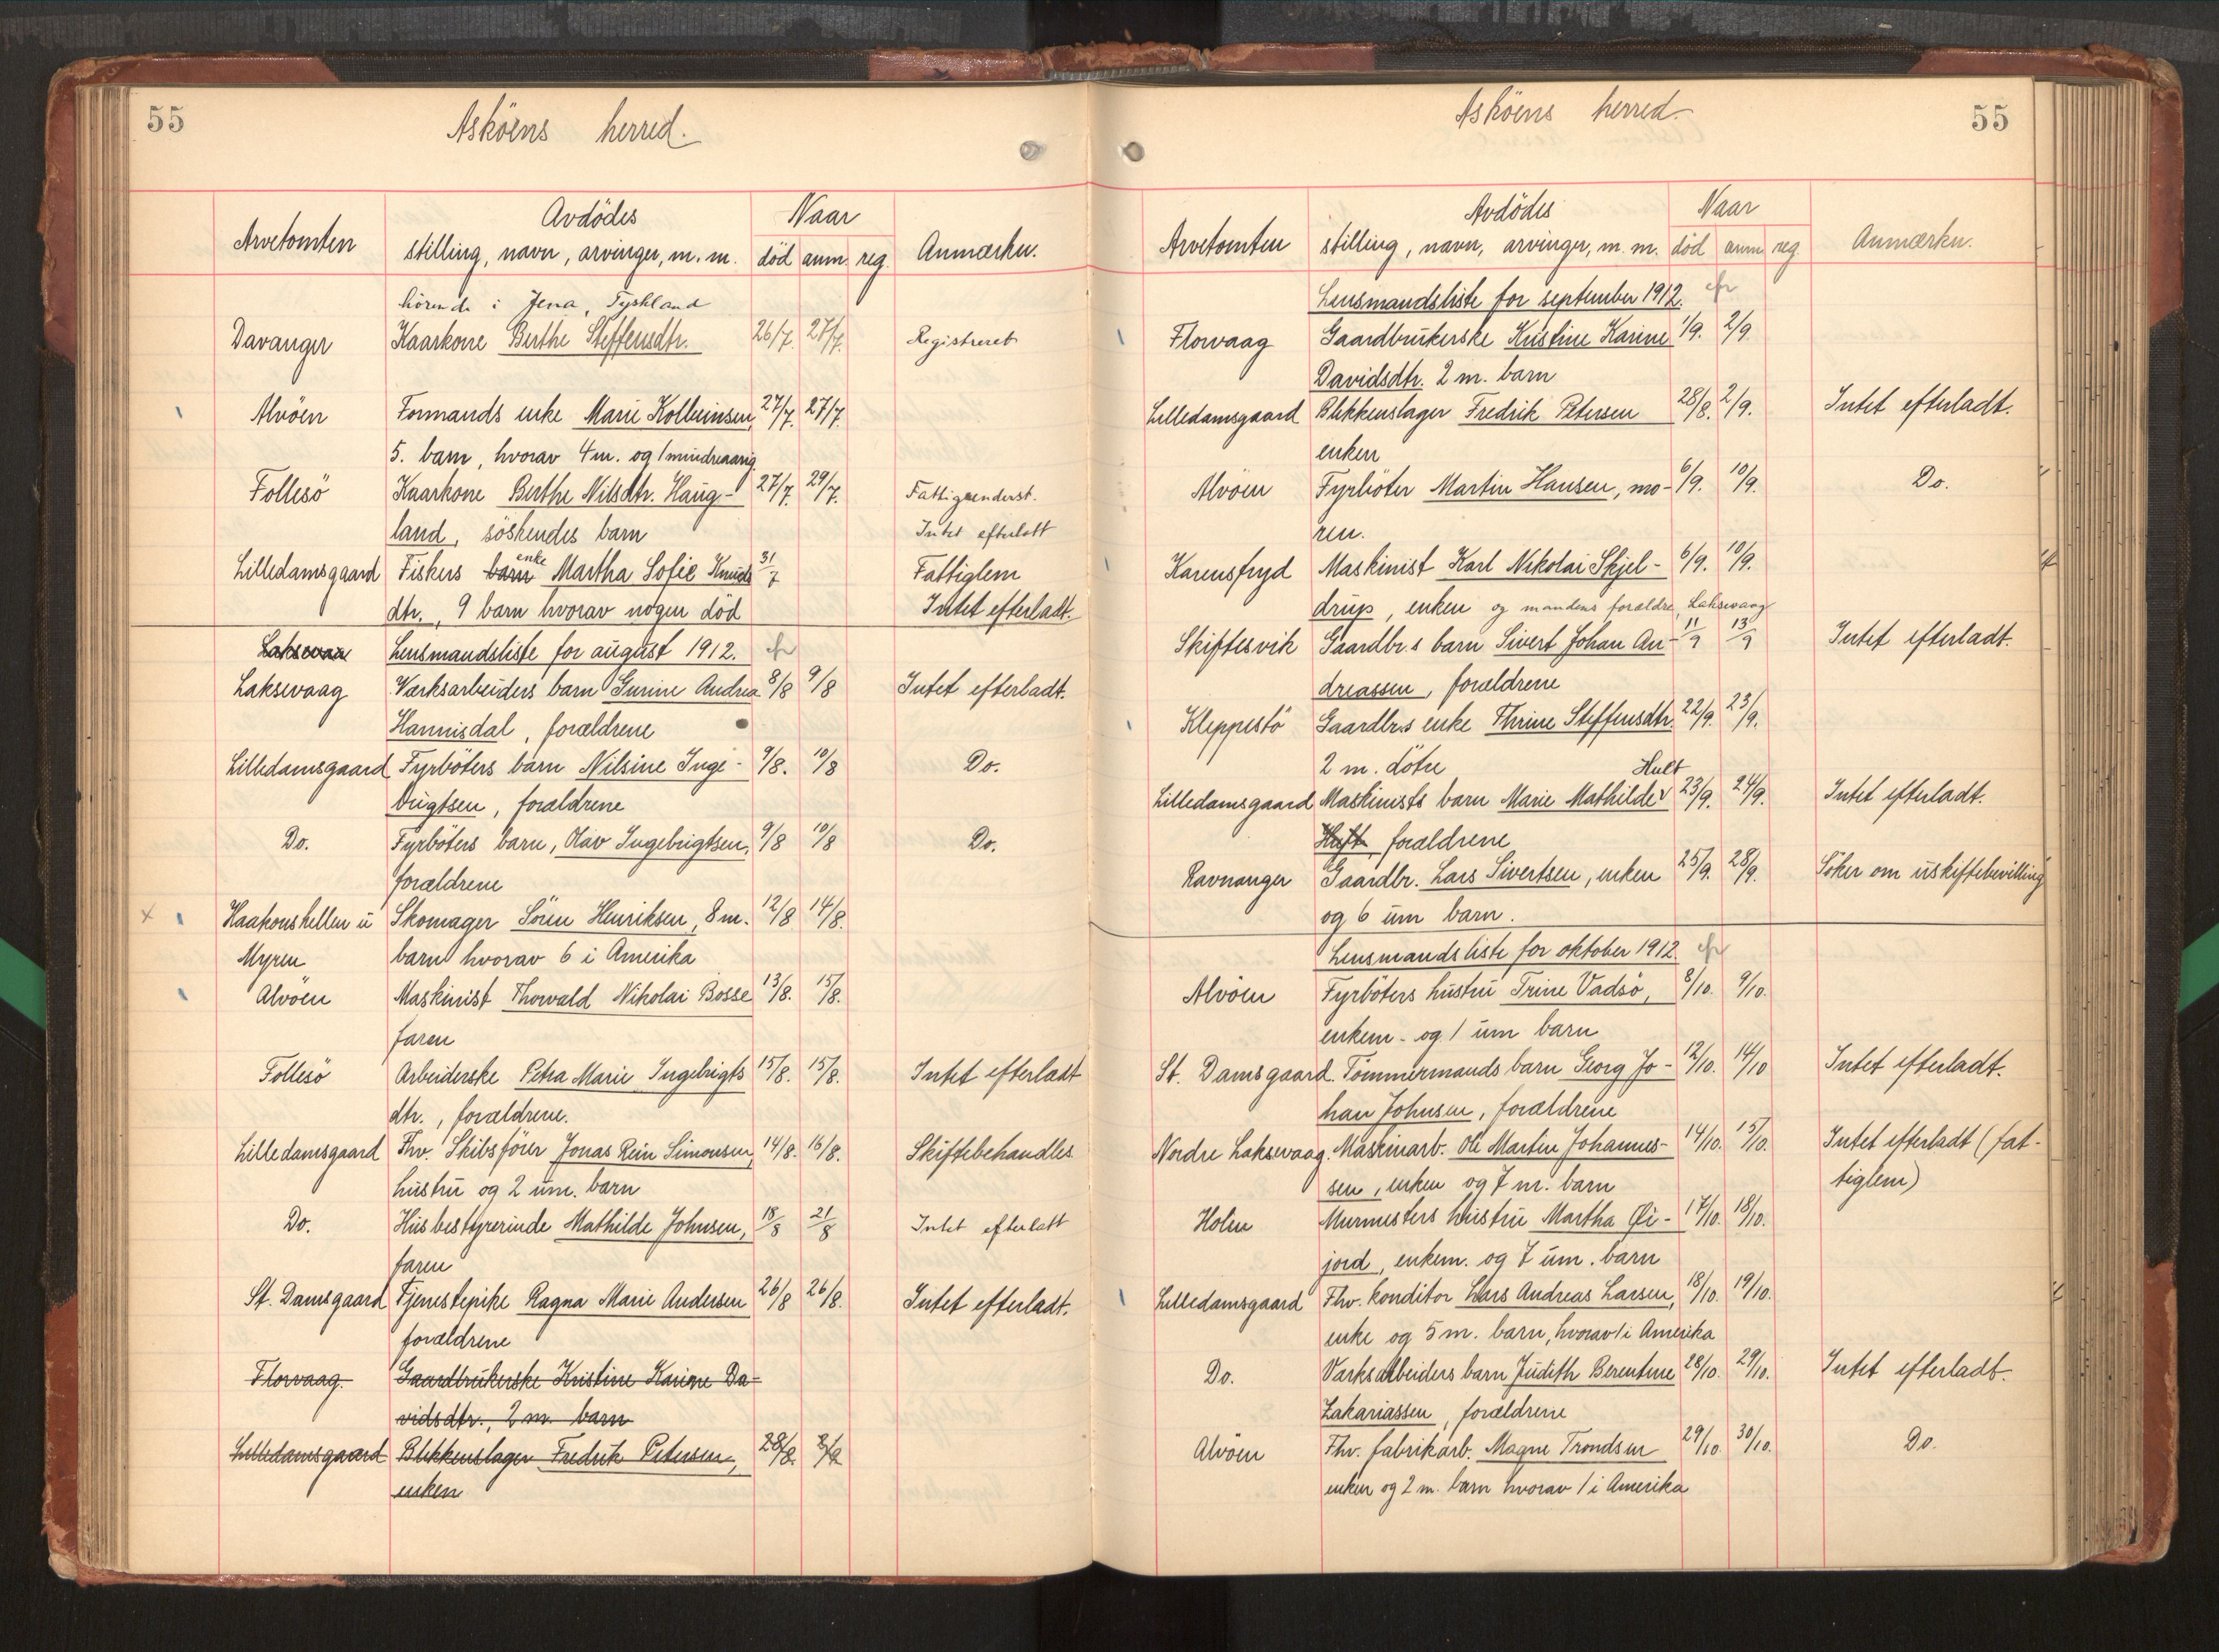 55
Asköens herred.
Arvetomten
Avdödes
stilling, navn, arvinger, m. m.
Naar
död anm. reg.
Anmærkn.
hörende i Jena, Tyskland
Davanger Kaarkone Berthe Steffensdtr. 26/7. 27/7. Registreret
Alvöen Formands enke Marie Kolbeinsen, 27/7. 27/7.
5. barn, hvorav 4 m. og 1 mindreaarig
Follesö Kaarkone Berthe Nilsdtr. Haug- 27/7. 29/7. Fattigunderst.
land, söskendes barn Intet efterlatt
Lilledamsgaard Fiskers barn enke Martha Sofie Knuds 31/7 Fattiglem
dtr., 9 barn hvorav nogen död Intet efterladt.
Laksevaa Lensmandsliste for august 1912.
Laksevaag Værksarbeiders barn Gurine Andrea 8/8 9/8 Intet efterladt.
Hannisdal, forældrene
Lilledamsgaard Fyrböters barn Nilsine Inge- 9/8. 10/8 Do.
brigtsen, forældrene
Do. Fyrböters barn, Olav Ingebrigtsen, 9/8 10/8 Do.
forældrene
x Haakonshellen u Skomager Sören Henriksen, 8 m. 12/8 14/8.
Myren barn hvorav 6 i Amerika
Alvöen Maskinist Thorvald Nikolai Bosse 13/8. 15/8.
faren
Follesö Arbeiderske Petra Marie Ingebrigts 15/8. 15/8. Intet efterladt
dtr., forældrene.
Lilledamsgaard Fhv. Skibsförer Jonas Rein Simonsen, 14/8. 16/8. Skiftebehandles
hustru og 2 um. barn
Do. Husbestyrerinde Mathilde Johnsen, 18/8 21/8 Intet efterlatt
faren
St. Damsgaard Tjenestepike Ragna Marie Andersen 26/8 26/8. Intet efterladt.
forældrene
Florvaag. Gaardbrukerske Kristine Karine Da-
vidsdtr., 2 m. barn
Lilledamsgaard Blikkenslager Fredrik Petersen, 28/8. 2/9
enken
55
Asköens herred.
Arvetomten
Avdödes
stilling, navn, arvinger, m. m.
Naar
död anm. reg.
Anmærkn.
Lensmandsliste for september 1912.
Florvaag Gaardbrukerske Kristine Karine 1/9. 2/9.
Davidsdtr. 2 m. barn
Lilledamsgaard Blikkenslager Fredrik Petersen 28/8. 2/9. Intet efterladt.
enken
Alvöen Fyrböter Martin Hansen, mo- 6/9. 10/9. Do.
ren.
Karensfryd Maskinist Karl Nikolai Skjel- 6/9. 10/9.
drup, enken og mandens forældre, Laksevaag
Skiftesvik Gaardbr.s barn Sivert Johan An- 11/9 13/9 Intet efterladt.
dreassen, forældrene
Kleppestö Gaardbr.s enke Thrine Steffensdtr. 22/9. 23/9.
2 m. dötre Hult
Lilledamsgaard Maskinists barn Marie Mathilde 23/9. 24/9. Intet efterladt.
Huft forældrene
Ravnanger Gaardbr. Lars Sivertsen, enken 25/9. 28/9. Söker om uskiftebevilling
og 6 um barn.
Lensmandsliste for oktober 1912.
Alvöen Fyrböters hustru Trine Vadsö, 8/10. 9/10.
enkem. og 1 um barn
St. Damsgaard. Tömmermands barn Georg Jo- 12/10. 14/10 Intet efterladt.
han Johnsen, forældrene
Nordre Laksevaag. Maskinarb. Ole Martin Johannes- 14/10. 15/10. Intet efterladt (fat-
sen, enken og 7 m. barn tiglem)
Holen Murmesters hustru Martha Øi- 17/10. 18/10.
jord, enkem. og 7 um. barn
Lilledamsgaard Fhv. konditor Lars Andreas Larsen, 18/10. 19/10.
enke og 5 m. barn, hvorav 1 i Amerika
Do. Værksarbeiders barn Judith Berentine 28/10. 29/10. Intet efterladt.
Zakariassen, forældrene
Alvöen Fhv. fabrikarb. Magne Trondsen 29/10. 30/10. Do.
enken og 2 m. barn hvorav 1 i Amerika